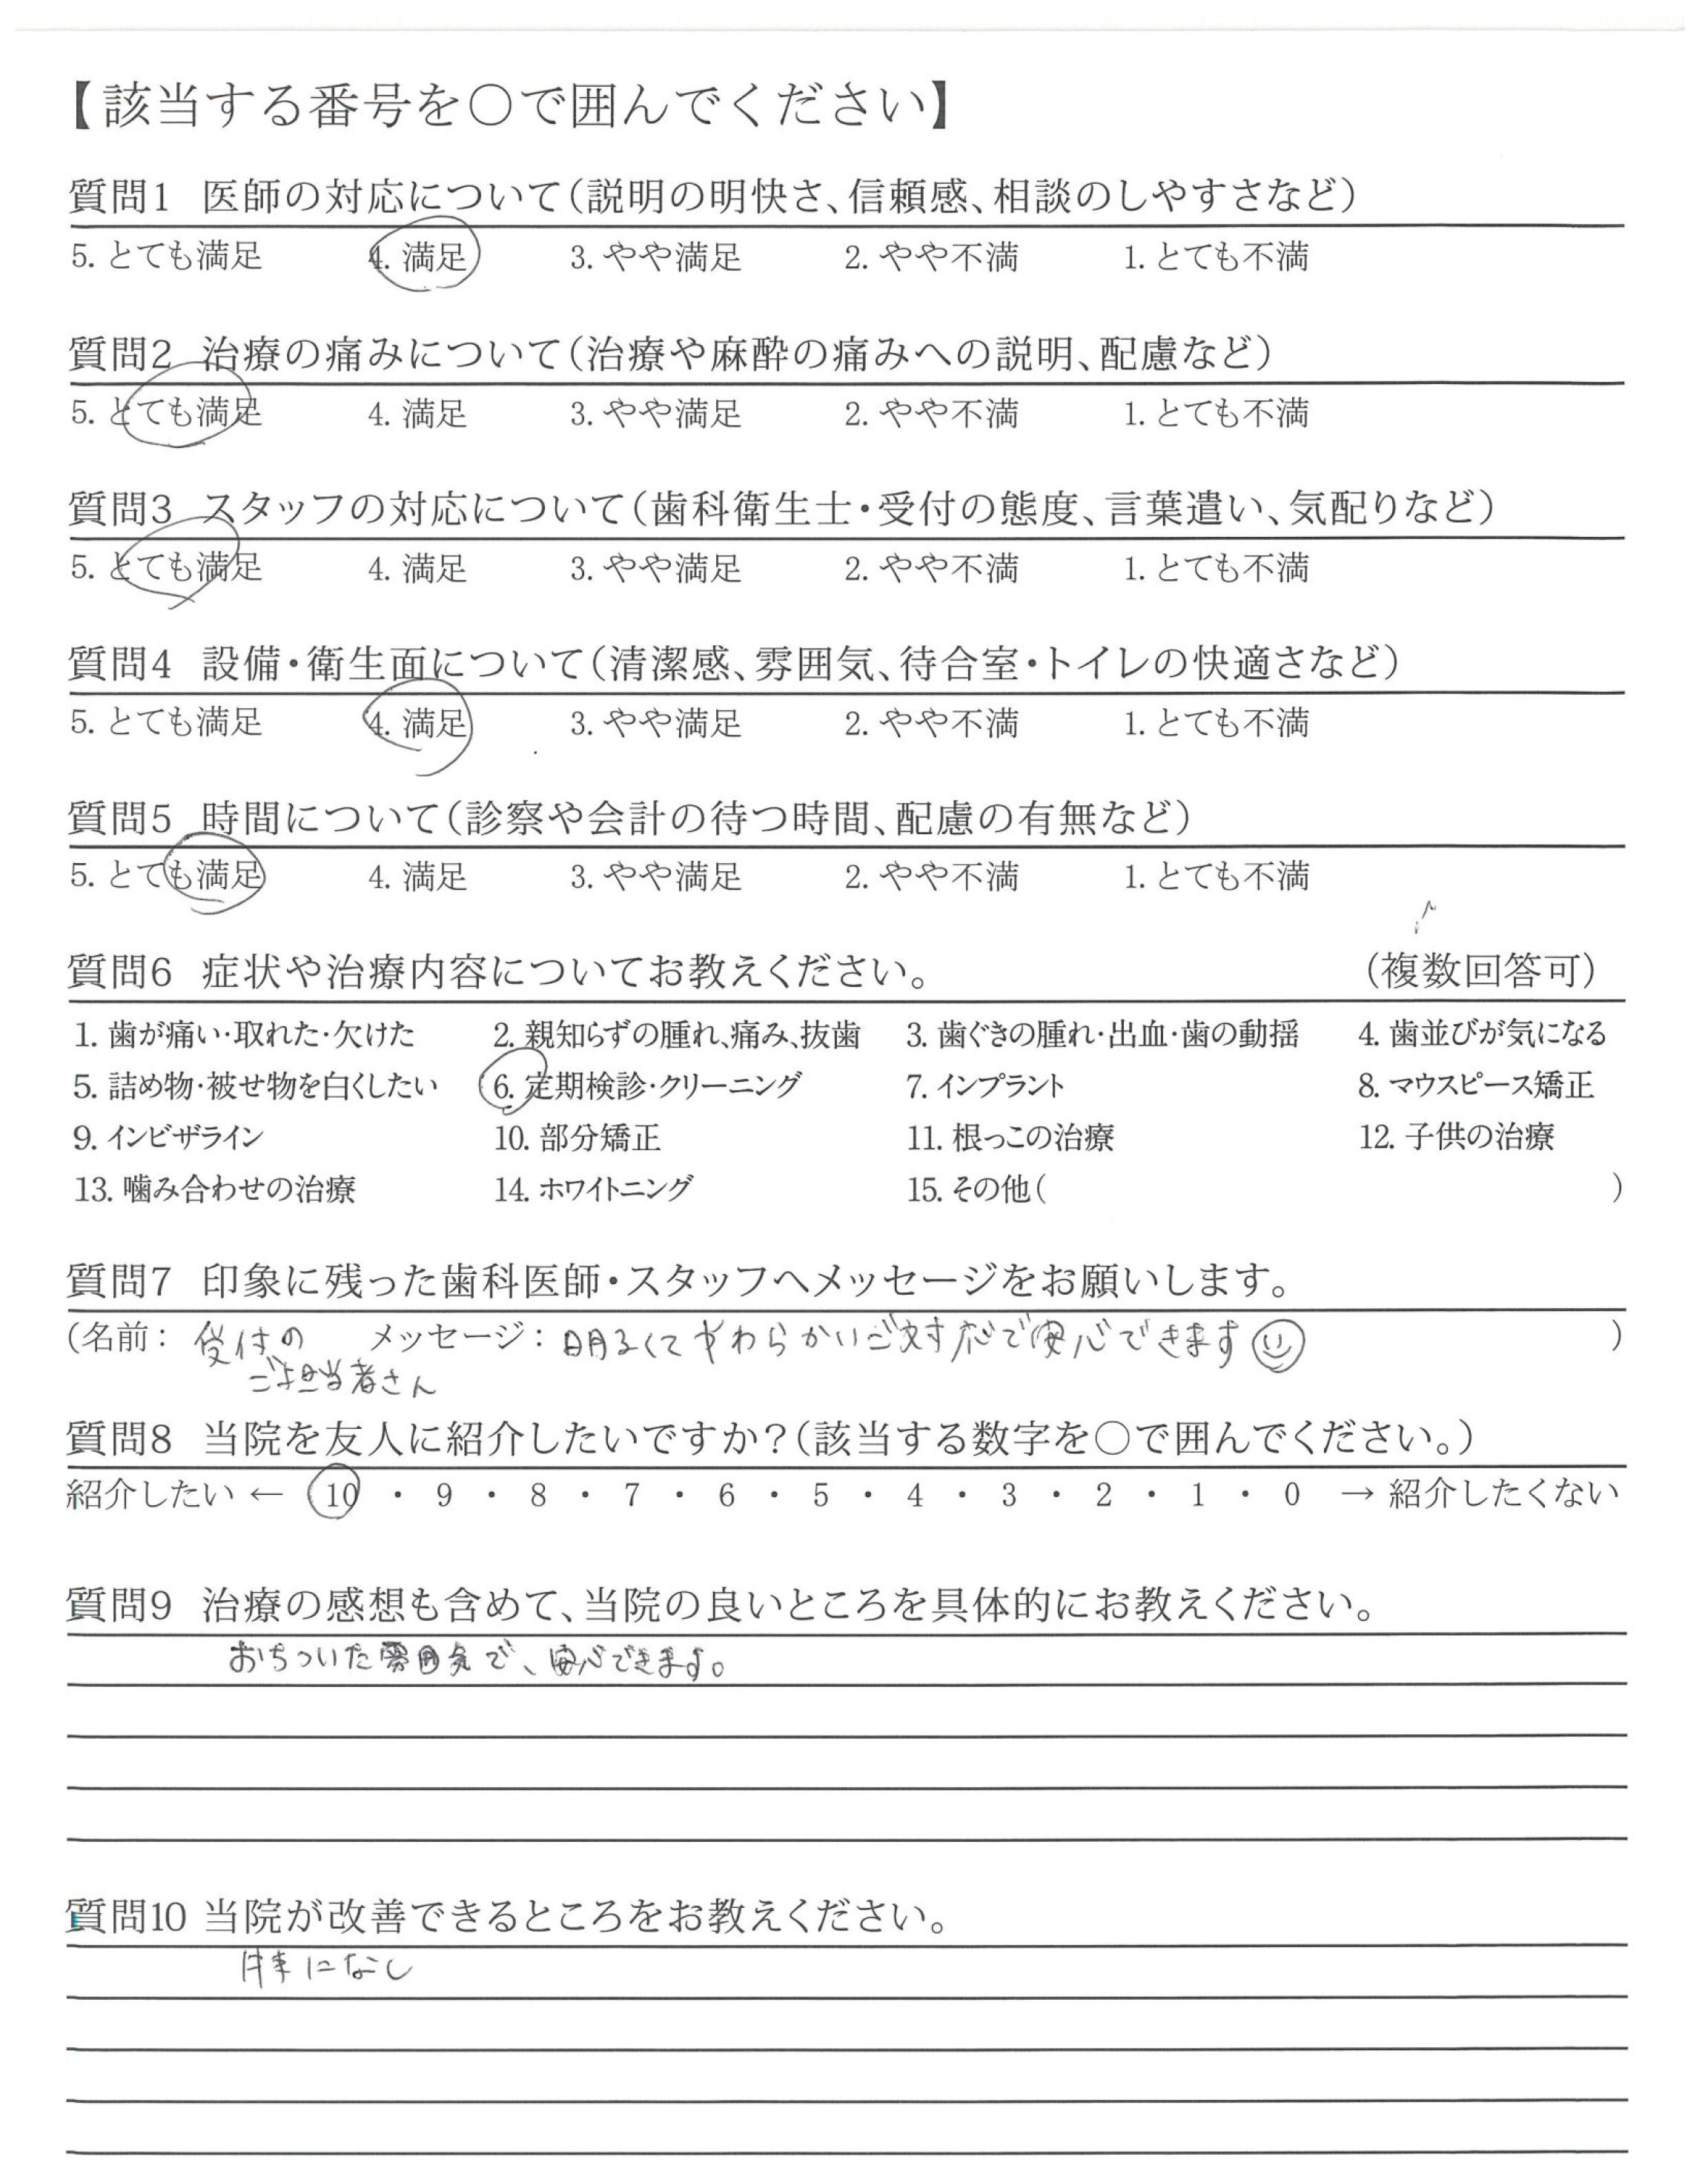 【該当する番号を○で囲んでください】
質問1 医師の対応について(説明の明快さ、信頼感、相談のしやすさなど)
5. とても満足 4. 満足 3. やや満足 2. やや不満 1. とても不満
質問2 治療の痛みについて(治療や麻酔の痛みへの説明、配慮など)
5. とても満足 4. 満足 3. やや満足 2. やや不満 1. とても不満
質問3 スタッフの対応について(歯科衛生士・受付の態度、言葉遣い、気配りなど)
5. とても満足 4. 満足 3. やや満足 2. やや不満 1. とても不満
質問4 設備・衛生面について(清潔感、雰囲気、待合室・トイレの快適さなど)
5. とても満足 4. 満足 3. やや満足 2. やや不満 1. とても不満
質問5 時間について(診察や会計の待つ時間、配慮の有無など)
5. とても満足 4. 満足 3. やや満足 2. やや不満 1. とても不満
質問6 症状や治療内容についてお教えください。 (複数回答可)
1. 歯が痛い・取れた・欠けた 2. 親知らずの腫れ、痛み、抜歯 3. 歯ぐきの腫れ・出血・歯の動揺 4. 歯並びが気になる
5. 詰め物・被せ物を白くしたい 6. 定期検診・クリーニング 7. インプラント 8. マウスピース矯正
9. インビザライン 10. 部分矯正 11. 根っこの治療 12. 子供の治療
13. 噛み合わせの治療 14. ホワイトニング 15. その他( )
質問7 印象に残った歯科医師・スタッフへメッセージをお願いします。
(名前: 受付の メッセージ: 明るくてやわらかいご対応で安心できます )
ご担当者さん
質問8 当院を友人に紹介したいですか?(該当する数字を○で囲んでください。)
紹介したい ← 10 ・ 9 ・ 8 ・ 7 ・ 6 ・ 5 ・ 4 ・ 3 ・ 2 ・ 1 ・ 0 → 紹介したくない
質問9 治療の感想も含めて、当院の良いところを具体的にお教えください。
おちついた雰囲気で、安心できます。
質問10 当院が改善できるところをお教えください。
特になし